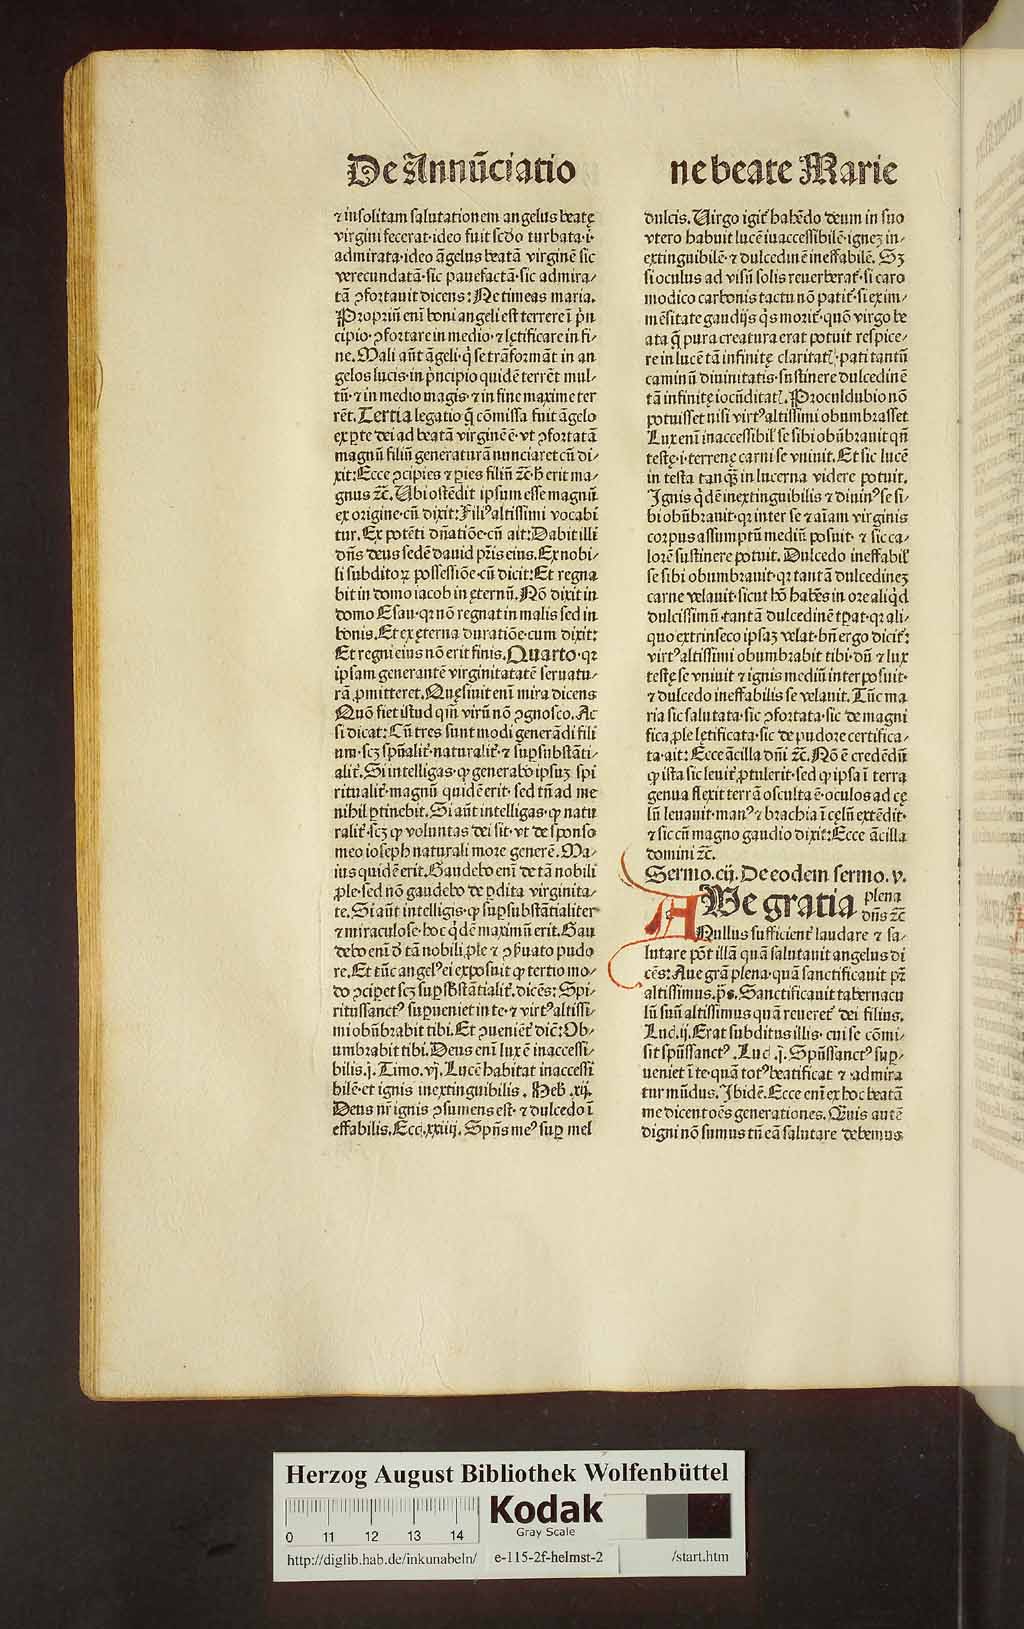 De Annūciatio
ne beate Marie
⁊ insolitam salutationem angelus beatę
virgini fecerat·ideo fuit scd̄o turbata·i·
admirata·ideo āgelus beatā virginē sic
verecundatā·sic pauefactā·sic admira⸗
tā ꝯfortauit dicens: Ne timeas maria.
Propriū enī boni angeli est terrere ī p̄n
cipio·ꝯfortare in medio·⁊ lętificare in fi⸗
ne. Mali aūt āgeli·q̄ se trāsformāt in an
gelos lucis·in p̄ncipio quidē terrēt mul⸗
tū·⁊ in medio magis·⁊ in fine maxime ter
rēt. Tertia legatio q̄ cōmissa fuit āgelo
ex ꝑte dei ad beatā virginē ē·vt ꝯfortatā
magnū filiū generaturā nunciaret cū di⸗
xit: Ecce ꝯcipies ⁊ paries filiū ⁊c̄·h̄ erit ma⸗
gnus ⁊c̄. Ubi ostēdit ipsum esse magnū
ex origine·cū dixit: Filiꝰ altissimi vocabi
tur. Ex potēti dn̄atiōe·cū ait: Dabit illi
dn̄s deus sedē dauid pr̄is eius. Ex nobi⸗
li subditoꝝ possessiōe·cū dicit: Et regna
bit in domo iacob in ęternū. Nō dixit in
domo Esau·qꝛ nō regnat in malis sed in
bonis. Et ex ęterna duratiōe·cum dixit:
Et regni eius nō erit finis. Quarto·qꝛ
ipsam generantē virginitatatē seruatu⸗
rā ꝓmitteret. Quęsiuit enī mira dicens
Quō fiet istud qm̄ virū nō ꝯgnosco. Ac
si dicat: Cū tres sunt modi generādi fili
um·scꝫ spūalit̄·naturalit̄·⁊ suꝑsubstāti⸗
alit̄. Si intelligas·ꝙ generabo ipsuꝫ spi
ritualit̄·magnū quidē erit·sed tn̄ ad me
nihil ꝑtinebit. Si aūt intelligas·ꝙ natu
ralit̄·scꝫ ꝙ voluntas dei sit·vt de sponso
meo ioseph naturali more generē. Ma⸗
ius quidē erit. Gaudebo enī de tā nobili
ꝓle·sed nō gaudebo de ꝑdita virginita⸗
te. Si aūt intelligis·ꝙ suꝑsubstātialiter
⁊ miraculose·hoc q̇dē maximū erit. Gau
debo enī d̄ tā nobili ꝓle ⁊ ꝯseruato pudo
re. Et tūc angelꝰ ei exposuit ꝙ tertio mo⸗
do ꝯciꝑet scꝫ suꝑsb̄stātialit̄. dicēs: Spi⸗
ritussanctꝰ suꝑueniet in te·⁊ virtꝰ altissi⸗
mi obūbrabit tibi. Et ꝯueniēt̄ dic̄: Ob⸗
umbrabit tibi. Deus enī lux ē inaccessi⸗
bilis. j. Timo. vj. Lucē habitat inaccessi
bilē·et ignis inextinguibilis. Heb. xij.
Deus nr̄ ignis ꝯsumens est·⁊ dulcedo ī
effabilis. Ecci. xxiiij. Spūs meꝰ suꝑ mel
dulcis. Uirgo igit̄ habēdo deum in suo
vtero habuit lucē inaccessibilē·igneꝫ in⸗
extinguibilē·⁊ dulcedinē ineffabilē. Sꝫ
si oculus ad visū solis reuerberat̄·si caro
modico carbonis tactu nō patit̄·si exim⸗
mēsitate gaudijs q̇s morit̄·quō virgo be
ata q̄ pura creatura erat potuit respice⸗
re in lucē tā infinitę claritatꝭ·pati tantū
caminū diuinitatis·sustinere dulcedinē
tā infinitę iocūditatꝭ. Proculdubio nō
potuisset nisi virtꝰ altissimi obumbrasset
Lux enī inaccessibil̄ se sibi obūbrauit qn̄
testę·i·terrenę carni se vniuit. Et sic lucē
in testa tanꝙꝫ in lucerna videre potuit.
Ignis q̇dē inextinguibilis ⁊ diuinꝰ se si⸗
bi obūbrauit·qꝛ inter se ⁊ aīam virginis
corpus assumptū mediū posuit·⁊ sic ca⸗
lorē sustinere potuit. Dulcedo ineffabil̄
se sibi obumbrauit·qꝛ tantā dulcedineꝫ
carne velauit·sicut hō habēs in ore aliq̇d
dulcissimū·tantā dulcedinē tꝑat·qꝛ ali⸗
quo extrinseco ipsaꝫ velat·bn̄ ergo dicit̄:
virtꝰ altissimi obumbrabit tibi·dū ⁊ lux
testę se vniuit ⁊ ignis mediū interposuit·
⁊ dulcedo ineffabilis se velauit. Tūc ma
ria sic salutata·sic ꝯfortata·sic de magni
fica ꝓle lętificata·sic de pudore certifica⸗
ta·ait: Ecce ācilla dn̄i ⁊c̄. Nō ē credēdū
ꝙ ista sic leuit̄ ꝓtulerit·sed ꝙ ipsa ī terra
genua flexit terrā osculta ē·oculos ad cę
lū leuauit·manꝰ ⁊ brachia ī cęlū extēdit·
⁊ sic cū magno gaudio dixit: Ecce ācilla
domini ⁊c̄.
Sermo. cij. De eodem sermo. v.
AVe gratia plena
dn̄s ⁊c̄
Nullus sufficient̄ laudare ⁊ sa⸗
lutare pōt illā quā salutauit angelus di
cēs: Aue grā plena·quā sanctificauit pr̄
altissimus. p̄s. Sanctificauit tabernacu
lū suū altissimus quā reueret̄ dei filius.
Luc. ij. Erat subditus illis·cui se cōmi⸗
sit spūssanctꝰ. Luc. j. Spūssanctꝰ suꝑ⸗
ueniet ī te·quā totꝰ beatificat ⁊ admira
tur mūdus. Ibidē. Ecce enī ex hoc beatā
me dicent oēs generationes. Quis autē
digni nō sumus tn̄ eā salutare debemus
Herzog August Bibliothek Wolfenbüttel
Kodak
Gray Scale
0 11 12 13 14
http://diglib.hab.de/inkunabeln/ e-115-2f-helmst-2 /start.htm